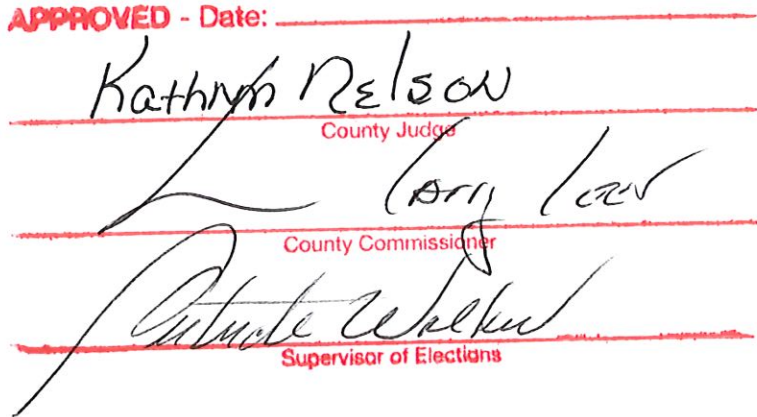 APPROVED - Date:
Kathryn Nelson
County Judge
Larry
County Commissioner
Gertrude Walker
Supervisor of Elections